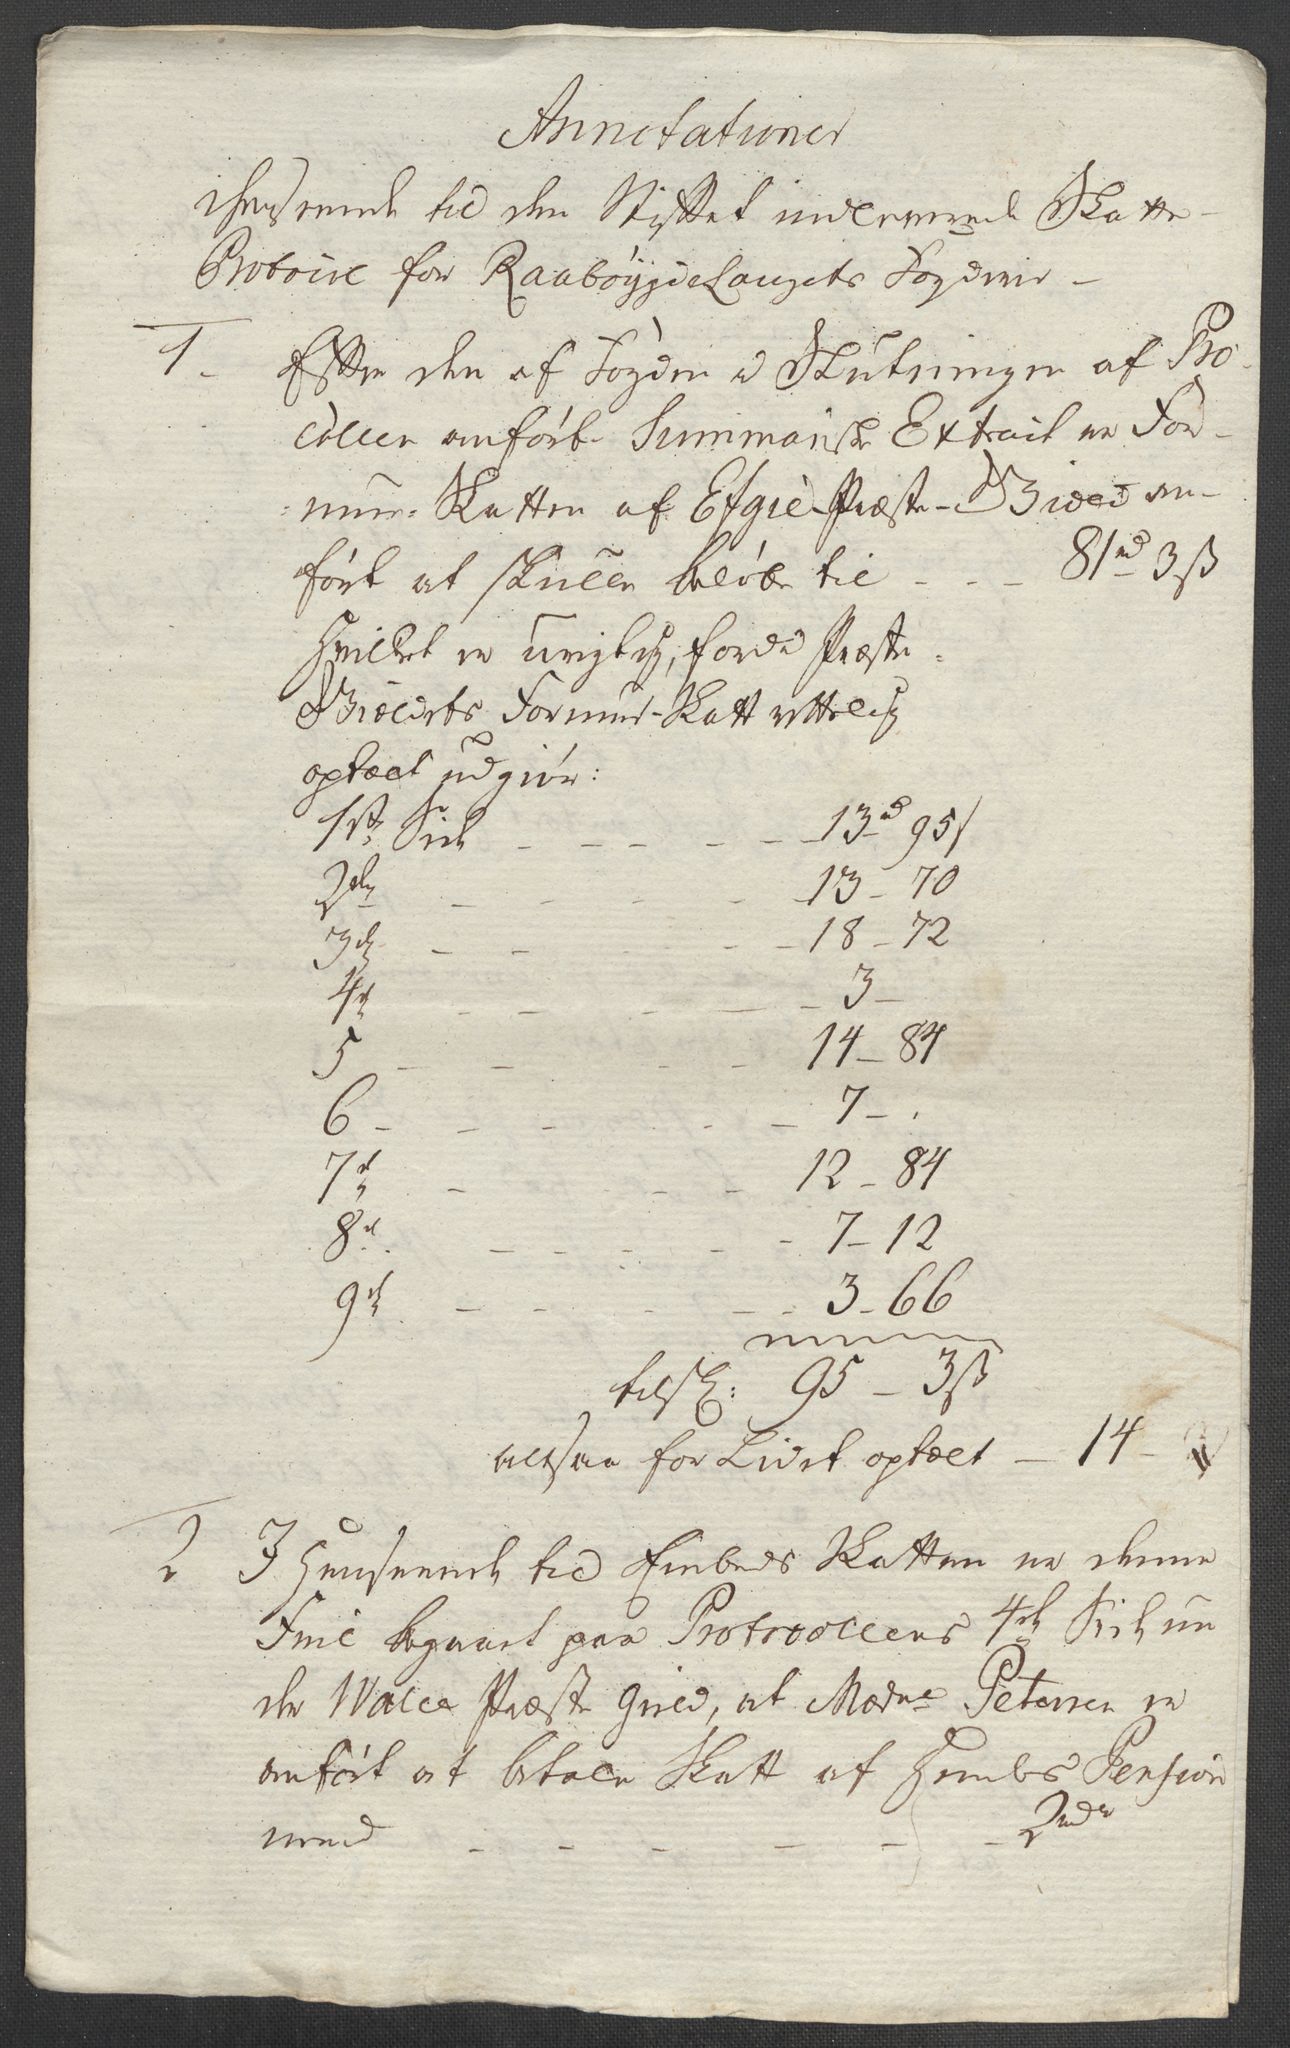 Annotationer
henseende til den Stiftet indleverede Skatte-
Protocol for Raabøygdelaugets Fogderie -
1. Efter den af Fogden i Slutningen af Pro-
collen anførte Summariske Extract er For-
mue-Skatten af Efgie Præste-Gield an-
ført at skulle beløbe til - - - 81rd 3ß
Hvilket er urigtig, fordi Præste-
Gieldets Formue-Skatt rettelig
optælt udgiør:
1ste Side - - - 13rd 95ß
2den - - - 13 - 70
3de - - - 18 - 72
4de - - - 3 -
5 - - - 14 - 84
6 - - - 7 - .
7de - - - 12 - 84
8de - - - 7 - 12
9de - - - 3 - 66
tils: 95 - 3ß
altsaa for Lidet optælt - 14 -
2 I Henseende til Embeds Skatten er denne
Feil begaaet paa Protocollens 4de Side un
der Walle Præste Gield, at Madme Petersen er
anført at betale Skatt af Hendes Pension
med - - - 2rdr